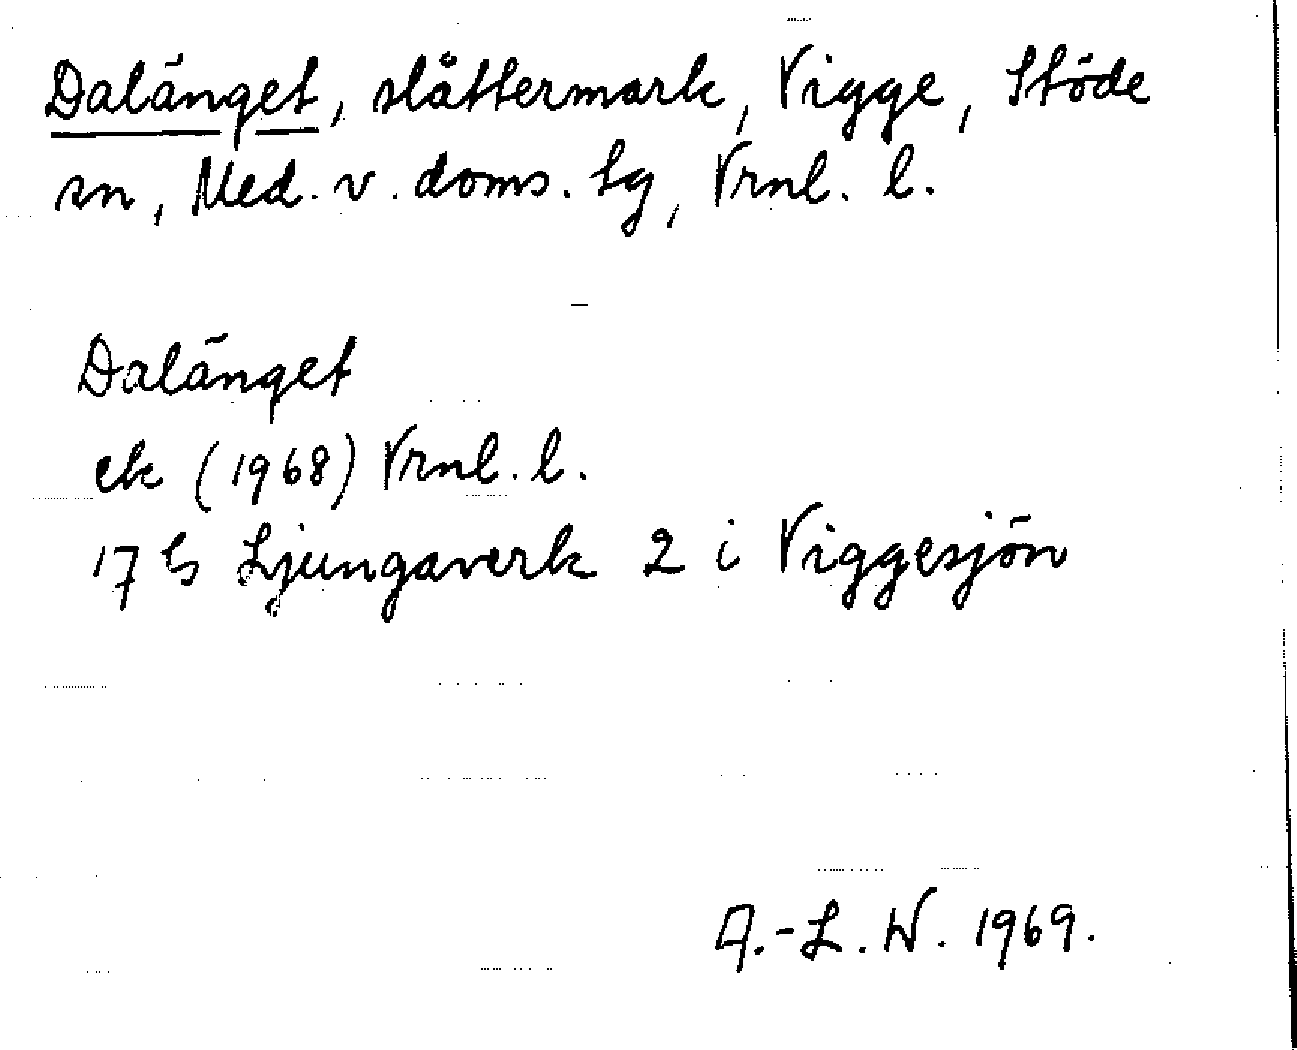 Dalänget, slåttermark, Vigge, Stöde
sn, Med. v. doms. lg, Vrnl. l.
Dalänget
ek (1968) Vrnl. l.
17 G Ljungaverk 2 i Viggesjön
A.-L. W. 1969.